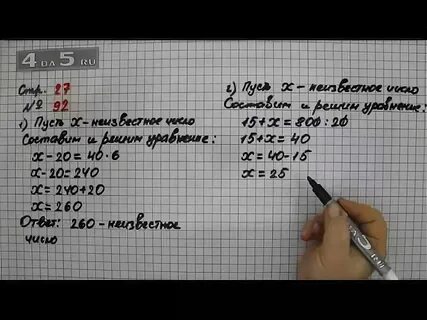 4 DA 5 RU
Стр. 27
№ 92
1) Пусть х - неизвестное число
Составим и решим уравнение:
х - 20 = 40 · 6
х - 20 = 240
х = 240 + 20
х = 260
Ответ: 260 - неизвестное
число
2) Пусть х - неизвестное число
Составим и решим уравнение:
15 + х = 800 : 20
15 + х = 40
х = 40 - 15
х = 25